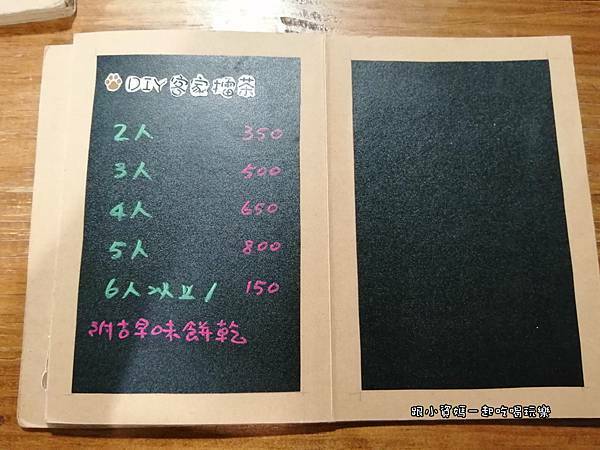 DIY客家擂茶
2人 350
3人 500
4人 650
5人 800
6人以上/ 150
附古早味餅乾
跟小資媽一起吃喝玩樂